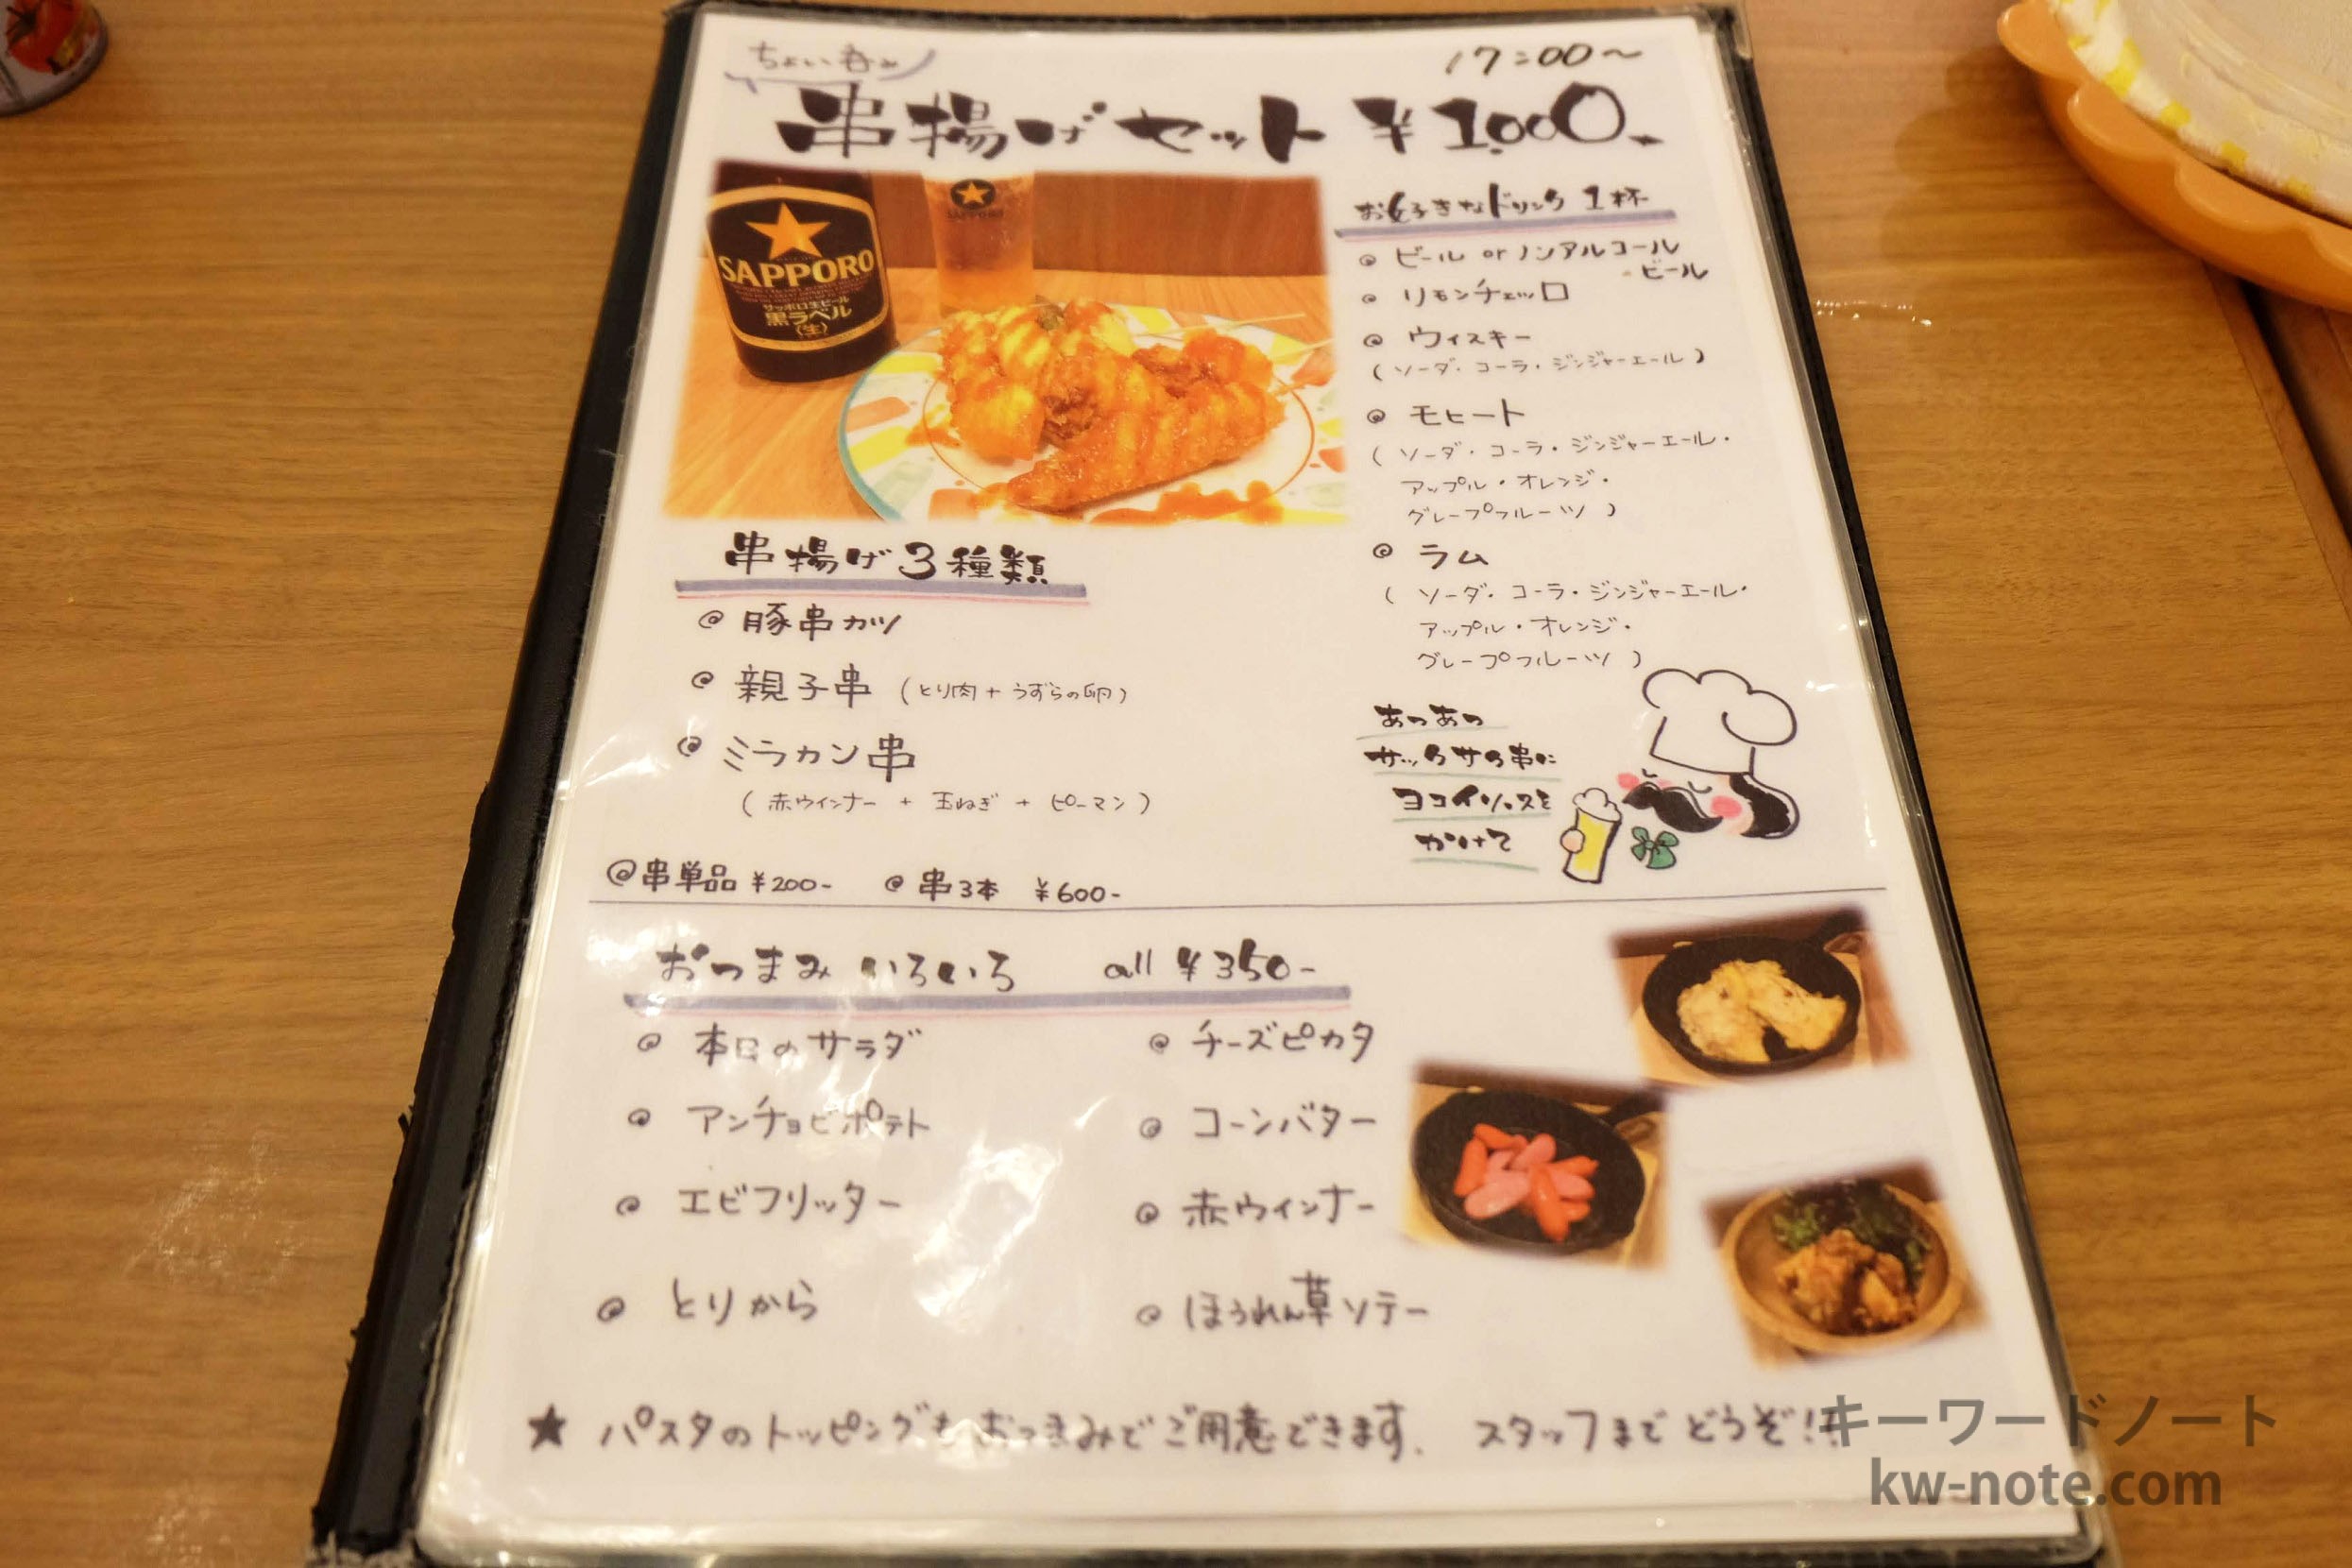 ちょい呑み
17:00〜
串揚げセット ¥1,000-
SAPPORO
サッポロ生ビール
黒ラベル
〈生〉
SAPPORO
お好きなドリンク 1杯
◎ ビール or ノンアルコール
ビール
◎ リモンチェッロ
◎ ウィスキー
( ソーダ・コーラ・ジンジャーエール )
◎ モヒート
( ソーダ・コーラ・ジンジャーエール・
アップル・オレンジ・
グレープフルーツ )
◎ ラム
( ソーダ・コーラ・ジンジャーエール・
アップル・オレンジ・
グレープフルーツ )
串揚げ3種類
◎ 豚串カツ
◎ 親子串 (とり肉+うずらの卵)
◎ ミラカン串
( 赤ウインナー + 玉ねぎ + ピーマン )
あつあつ
サックサクの串に
ヨコイソースを
かけて
◎串単品 ¥200- ◎串3本 ¥600-
おつまみいろいろ all ¥350-
◎ 本日のサラダ
◎ チーズピカタ
◎ アンチョビポテト
◎ コーンバター
◎ エビフリッター
◎ 赤ウインナー
◎ とりから
◎ ほうれん草ソテー
★ パスタのトッピングもおつまみでご用意できます. スタッフまでどうぞ!!
キーワードノート
kw-note.com